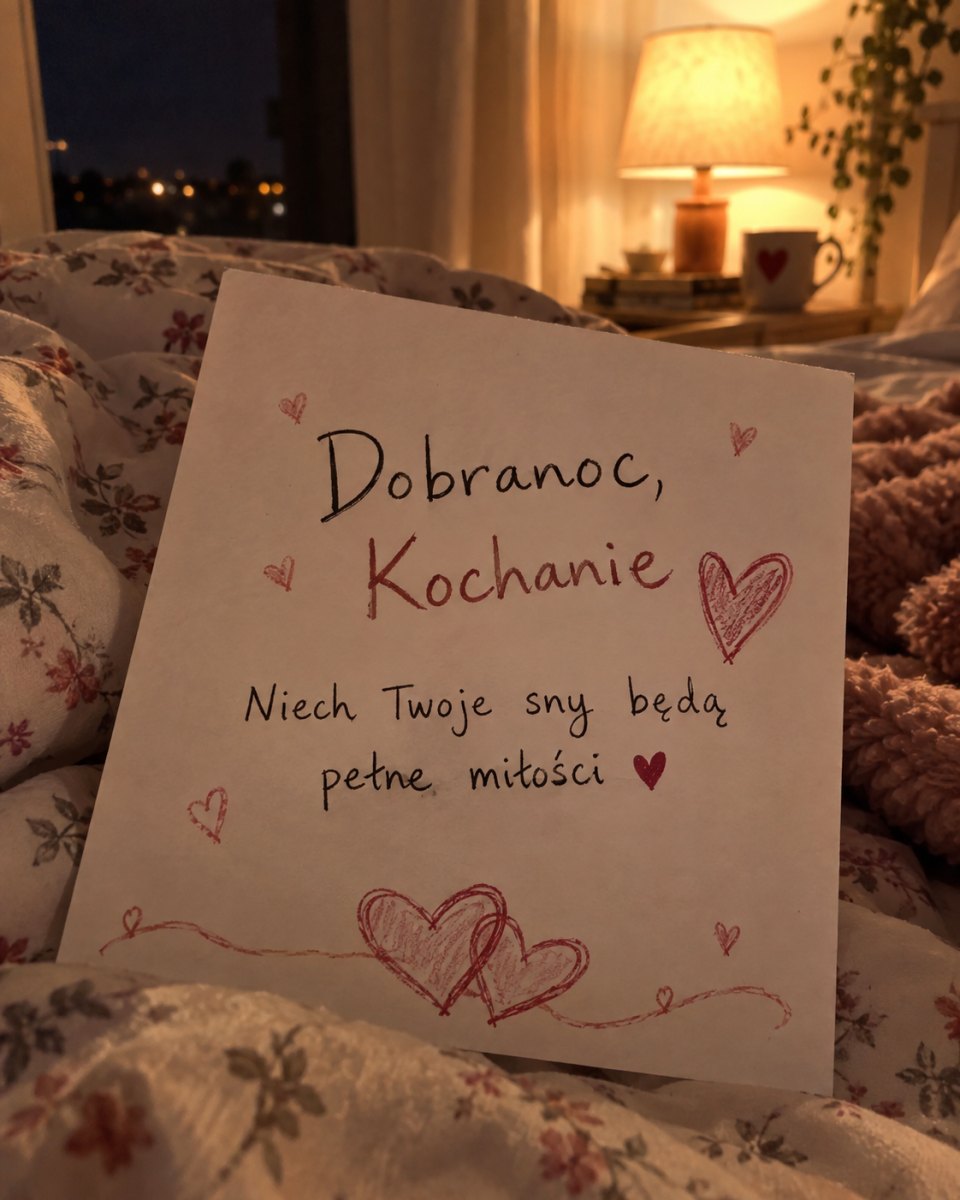 Dobranoc,
Kochanie
Niech Twoje sny będą
pełne miłości ♥